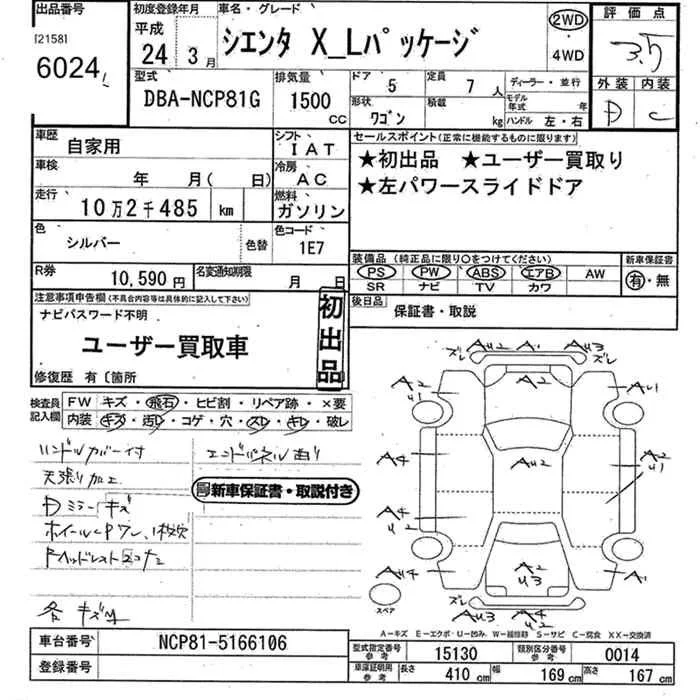 出品番号
[2158]
6024
初度登録年月
平成
24年 3月
車名・グレード
シエンタ X_Lパッケージ
2WD
・
4WD
評価点
3.5
外装 内装
D C
型式
DBA-NCP81G
排気量
1500
CC
ドア 5
定員 7人
形状
ワゴン
積載
kg
ディーラー・並行
モデル年式 年
ハンドル 左・右
車歴
自家用
シフト
IAT
車検
年 月( 日)
冷房
AC
走行
10万2千485 km
燃料
ガソリン
色
シルバー
色替
色コード
1E7
R券
10,590円
名変通知期限
月 日
セールスポイント(正常に機能するものに限ります)
★初出品 ★ユーザー買取り
★左パワースライドドア
装備品(純正品に限り○をつけてください)
PS PW ABS エアB AW
SR ナビ TV カワ
新車保証書
有・無
後日品
保証書・取説
注意事項申告欄(不具合内容等は具体的に記入して下さい)
ナビパスワード不明
ユーザー買取車
初出品
修復歴 有〔箇所
検査員記入欄
FW キズ・飛石・ヒビ割・リペア跡・×要
内装 キズ・汚レ・コゲ・穴・スレ・キレ・破レ
ハンドルカバー付
エンドパネル曲り
天張り加工
Dミラーキズ
新車保証書・取説付き
各キズ凹
ズレ AU2 A1 AU3 ズレ
A2 U1
A2
A1
A4
AU2
A2 U1
A4 U2
AU4
A2 U3
A2
スペア
ズレ AU3 A4 U2
A-キズ E-エクボ・U-凹み W-補修跡 S-サビ C-腐食 XX-交換済
車台番号
NCP81-5166106
登録番号
型式指定番号
参考
15130
類別区分番号
参考
0014
車庫証明用
参考
長さ 410 cm
幅 169 cm
高さ 167 cm